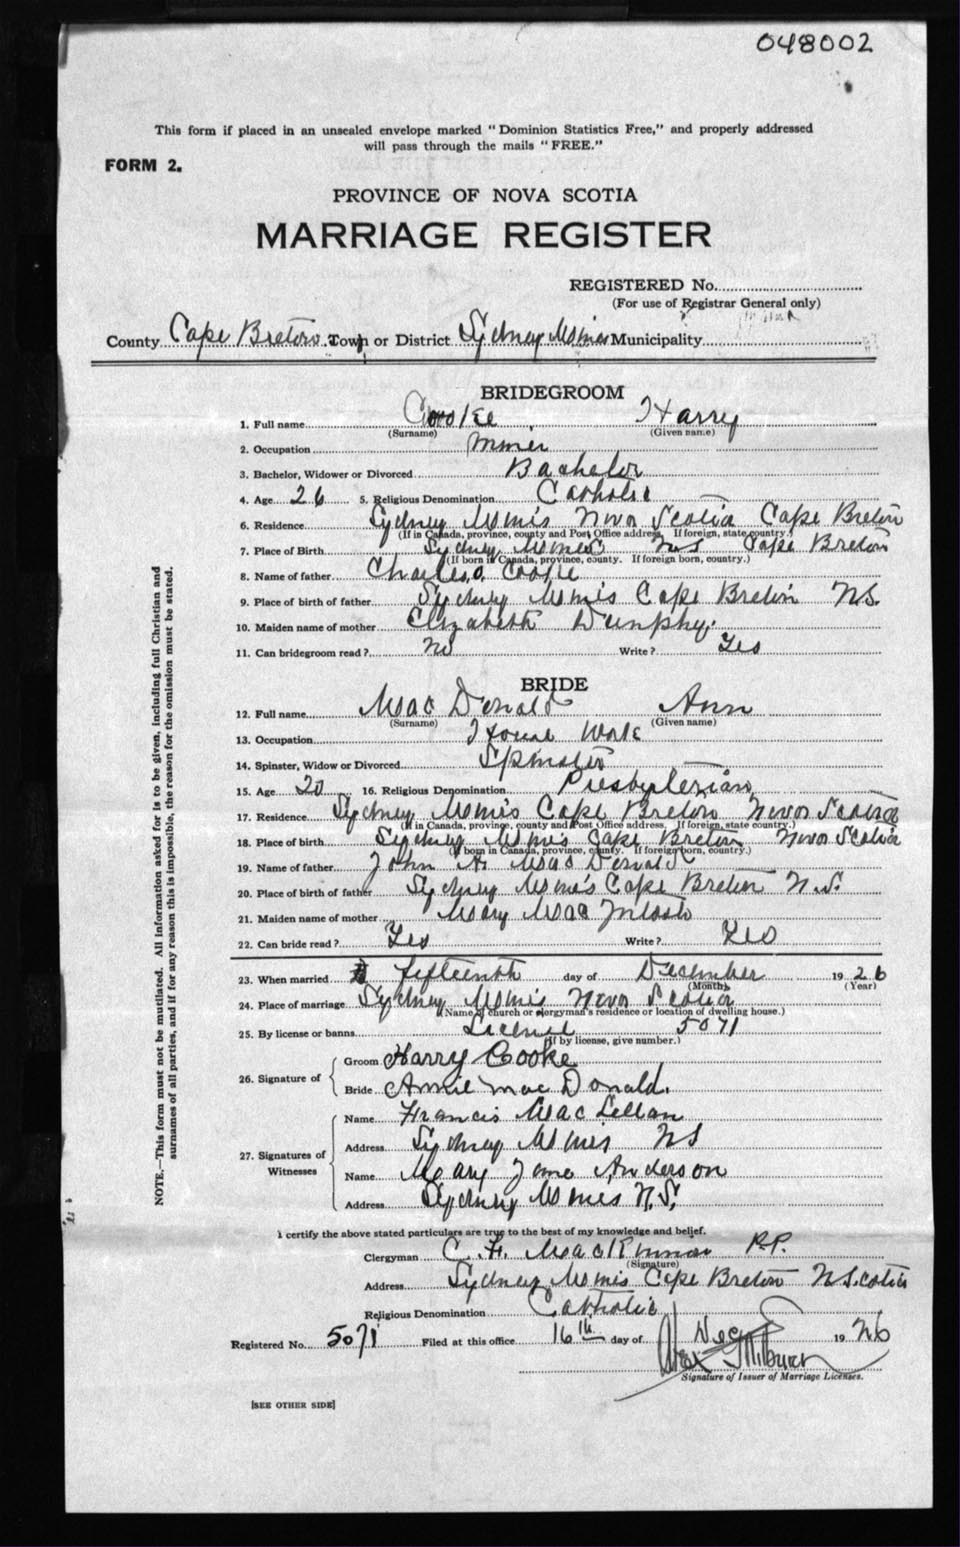 048002
This form if placed in an unsealed envelope marked "Dominion Statistics Free," and properly addressed
will pass through the mails "FREE."
FORM 2.
PROVINCE OF NOVA SCOTIA
MARRIAGE REGISTER
REGISTERED No.
(For use of Registrar General only)
County Cape Breton Town or District Sydney Mines Municipality
BRIDEGROOM
1. Full name Cooke Harry
(Surname) (Given name)
2. Occupation Miner
3. Bachelor, Widower or Divorced Bachelor
4. Age 26 5. Religious Denomination Catholic
6. Residence Sydney Mines Nova Scotia Cape Breton
(If in Canada, province, county and Post Office address. If foreign, state country.)
7. Place of Birth Sydney Mines NS Cape Breton
(If born in Canada, province, county. If foreign born, country.)
8. Name of father Charles O. Cooke
9. Place of birth of father Sydney Mines Cape Breton NS.
10. Maiden name of mother Elizabeth Dunphy.
11. Can bridegroom read? No Write? Yes
BRIDE
12. Full name MacDonald Ann
(Surname) (Given name)
13. Occupation House Work
14. Spinster, Widow or Divorced Spinster
15. Age 20 16. Religious Denomination Presbyterian
17. Residence Sydney Mines Cape Breton Nova Scotia
(If in Canada, province, county and Post Office address. If foreign, state country.)
18. Place of birth Sydney Mines Cape Breton Nova Scotia
(If born in Canada, province, county. If foreign born, country.)
19. Name of father John A. MacDonald
20. Place of birth of father Sydney Mines Cape Breton N.S.
21. Maiden name of mother Mary MacIntosh
22. Can bride read? Yes Write? Yes
23. When married fifteenth day of December 1926
(Month) (Year)
24. Place of marriage Sydney Mines Nova Scotia
(Name of church or clergyman's residence or location of dwelling house.)
25. By license or banns License 5071
(If by license, give number.)
26. Signature of
Groom Harry Cooke
Bride Annie MacDonald.
27. Signatures of Witnesses
Name Francis MacLellan
Address Sydney Mines NS
Name Mary Jane Anderson
Address Sydney Mines N.S.
I certify the above stated particulars are true to the best of my knowledge and belief.
Clergyman C. F. MacKinnon P.P.
(Signature)
Address Sydney Mines Cape Breton N Scotia
Religious Denomination Catholic
Registered No. 5071 Filed at this office 16th day of Dec 1926
Signature of Issuer of Marriage Licenses.
[SEE OTHER SIDE]
NOTE.—This form must not be mutilated. All information asked for is to be given, including full Christian and
surnames of all parties, and if for any reason this is impossible, the reason for the omission must be stated.